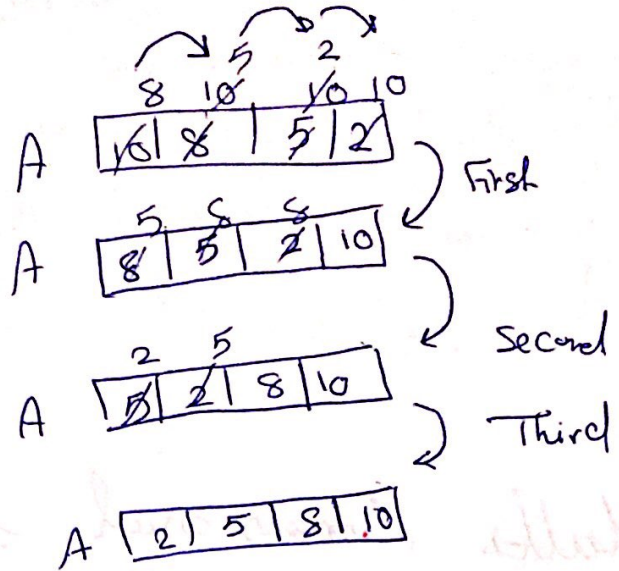 5 2
8 10 10 10
A 10 8 5 2
First
5 8 8
A 8 5 2 10
Second
2 5
A 5 2 8 10
Third
A 2 5 8 10